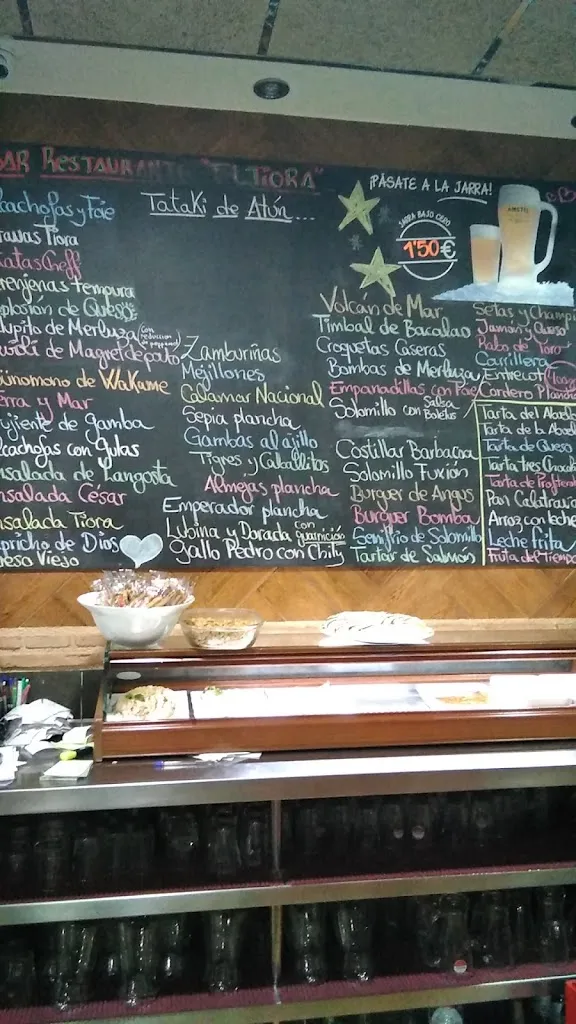 BAR RESTAURANTE "EL TIORA"
Tataki de Atún...
¡PÁSATE A LA JARRA!
JARRA BAJO CERO
1'50€
AMSTEL
cachofas y Foie
ravas Tiora
atas Cheff
renjenas tempura
plosion de Quesos
upito de Merluza (con
de Magret de pato
nomono de Wakame
erra y Mar
ujiente de gamba
cachofas con Gulas
nsalada de Langosta
nsalada César
nsalada Tiora
pricho de Dios
ueso Viejo
Zamburiñas
Mejillones
Calamar Nacional
Sepia plancha
Gambas al ajillo
Tigres y Caballitos
Almejas plancha
Emperador plancha
Lubina y Dorada con guarnición
Gallo Pedro con Chily
Volcán de Mar
Timbal de Bacalao
Croquetas Caseras
Bombas de Merluza
Empanadillas con Foie
Solomillo con Salsa Boletus
Costillar Barbacoa
Solomillo Fuxión
Burguer de Angus
Burguer Bomba
Semifrio de Solomillo
Tartar de Salmón
Setas y Champi
Jamón y Queso
Rabo de Toro
Carrillera
Entrecot
Cordero Plancha
Tarta del Abuelo
Tarta de la Abuela
Tarta de Queso
Tarta tres Chocola
Tarta de Profiterol
Pan Calatrava
Arroz con leche
Leche Frita
Fruta del Tiempo